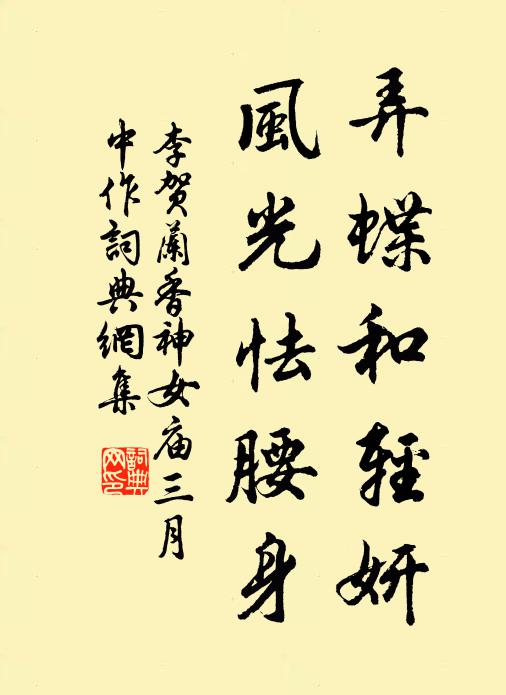 弄蝶和輕妍
風光怯腰身
李贺蘭香神女庙三月
中作詞典網集
詞典
网印